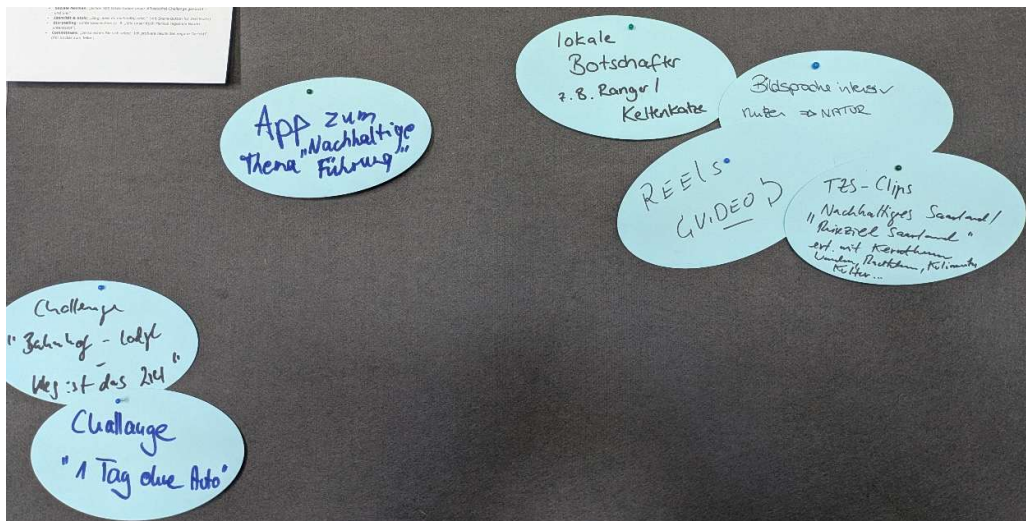 App zum
Thema "Nachhaltige
Führung"
lokale
Botschafter
z.B. Ranger/
Keltenkatze
Bildsprache intensiv
nutzen => NATUR
REELS
(VIDEO)
TZS-Clips
Nachhaltiges Saarland/
"Reiseziel Saarland"
evt. mit Kernthemen
Wandern, Radfahren, Kulinarik,
Kultur...
Challenge
"Bahnhof -
Weg ist das Ziel"
Challange
"1 Tag ohne Auto"